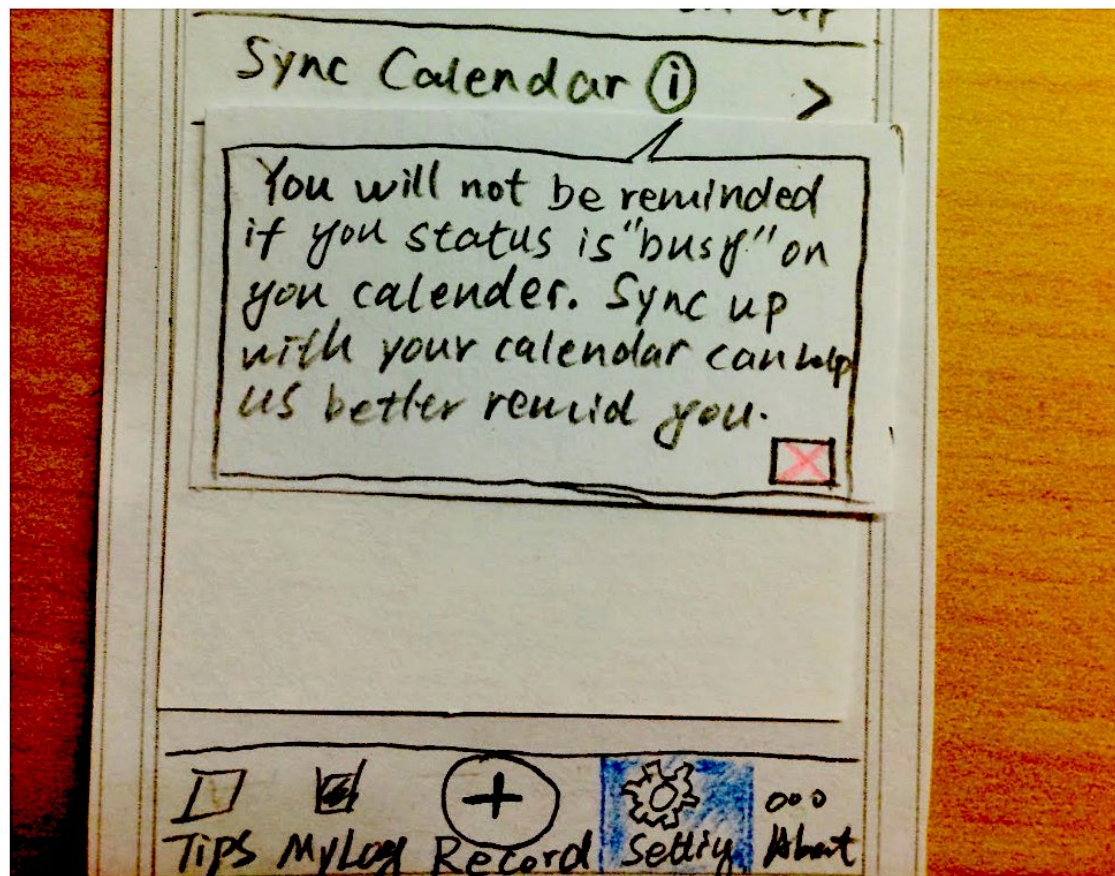 Sync Calendar i >
You will not be reminded
if you status is "busy" on
you calender. Sync up
with your calendar can help
us better remid you.
Tips MyLog Record Settig About